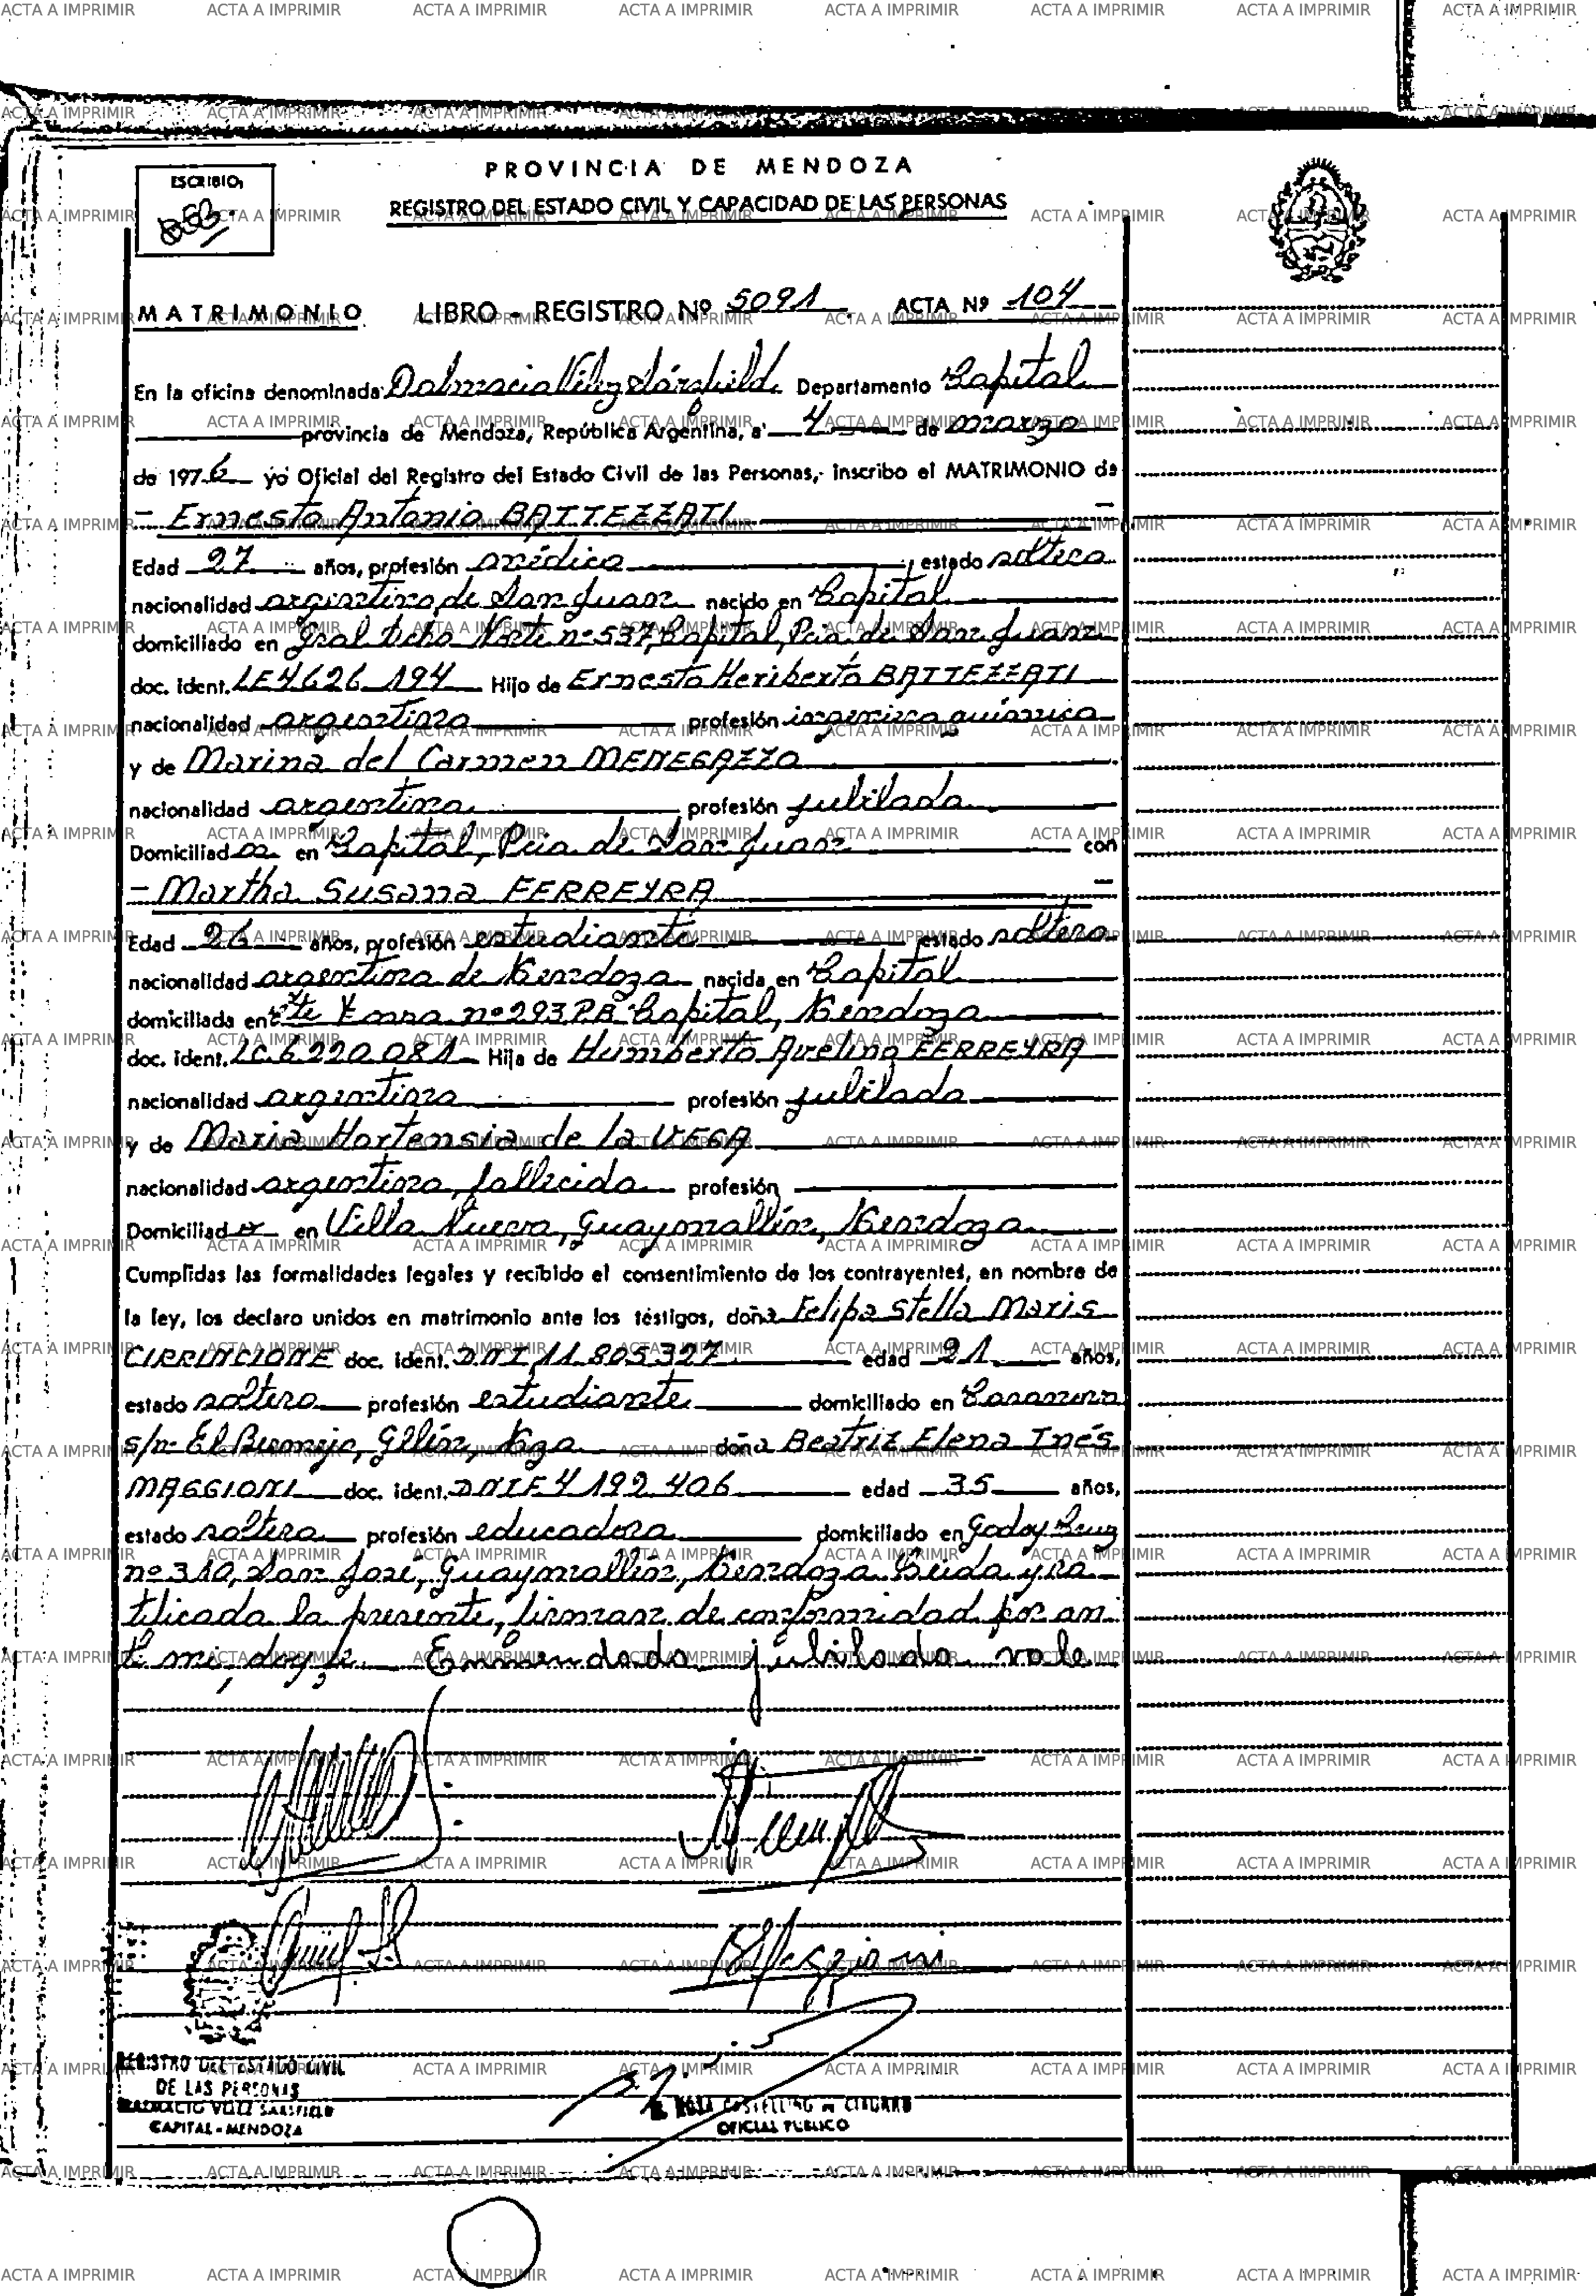 ESCRIBIO,
PROVINCIA DE MENDOZA
REGISTRO DEL ESTADO CIVIL Y CAPACIDAD DE LAS PERSONAS
MATRIMONIO LIBRO - REGISTRO Nº 5091 ACTA Nº 104
En la oficina denominada: Dalmacio Vélez Sársfield Departamento Capital
provincia de Mendoza, República Argentina, a 4 de marzo
de 1976 yo Oficial del Registro del Estado Civil de las Personas, inscribo el MATRIMONIO de
- Ernesto Antonio BATTEZZATI -
Edad 27 años, profesión médico estado soltero
nacionalidad argentino, de San Juan nacido en Capital
domiciliado en Gral Acha Norte nº 537, Capital, Pcia. de San Juan
doc. ident. LE 4626 194 Hijo de Ernesto Heriberto BATTEZZATI
nacionalidad argentino profesión ingeniero químico
y de Marina del Carmen MENEGAZZO
nacionalidad argentina profesión jubilada
Domiciliad os en Capital, Pcia. de San Juan con
- Martha Susana FERREYRA -
Edad 26 años, profesión estudiante estado soltera
nacionalidad argentina de Mendoza nacida en Capital
domiciliada en nº 293 P.B. Capital, Mendoza
doc. ident. LC. 6 220 081 Hija de Humberto Avelino FERREYRA
nacionalidad argentino profesión jubilado
y de Maria Hortensia de la VEGA
nacionalidad argentina, fallecida profesión
Domiciliad o en Villa Nueva, Guaymallén, Mendoza
Cumplidas las formalidades legales y recibido el consentimiento de los contrayentes, en nombre de
la ley, los declaro unidos en matrimonio ante los testigos, doña Felipa Stella Maris
CIRRINCIONE doc. ident. DNI 11.805327 edad 21 años,
estado soltera profesión estudiante domiciliado en
s/nº El Bermejo, Gllén, Mza doña Beatriz Elena Inés
MAGGIONI doc. ident. DNI F 4 192 406 edad 35 años,
estado soltera profesión educadora domiciliado en Godoy Cruz
nº 310, San José, Guaymallén, Mendoza. Leída y ra-
tificada la presente, firman de conformidad por an-
te mi, doy fe. Enmendado jubilado vale
BMaggioni
REGISTRO DEL ESTADO CIVIL
DE LAS PERSONAS
DALMACIO VELEZ SARSFIELD
CAPITAL - MENDOZA
OFICIAL PUBLICO
ACTA A IMPRIMIR